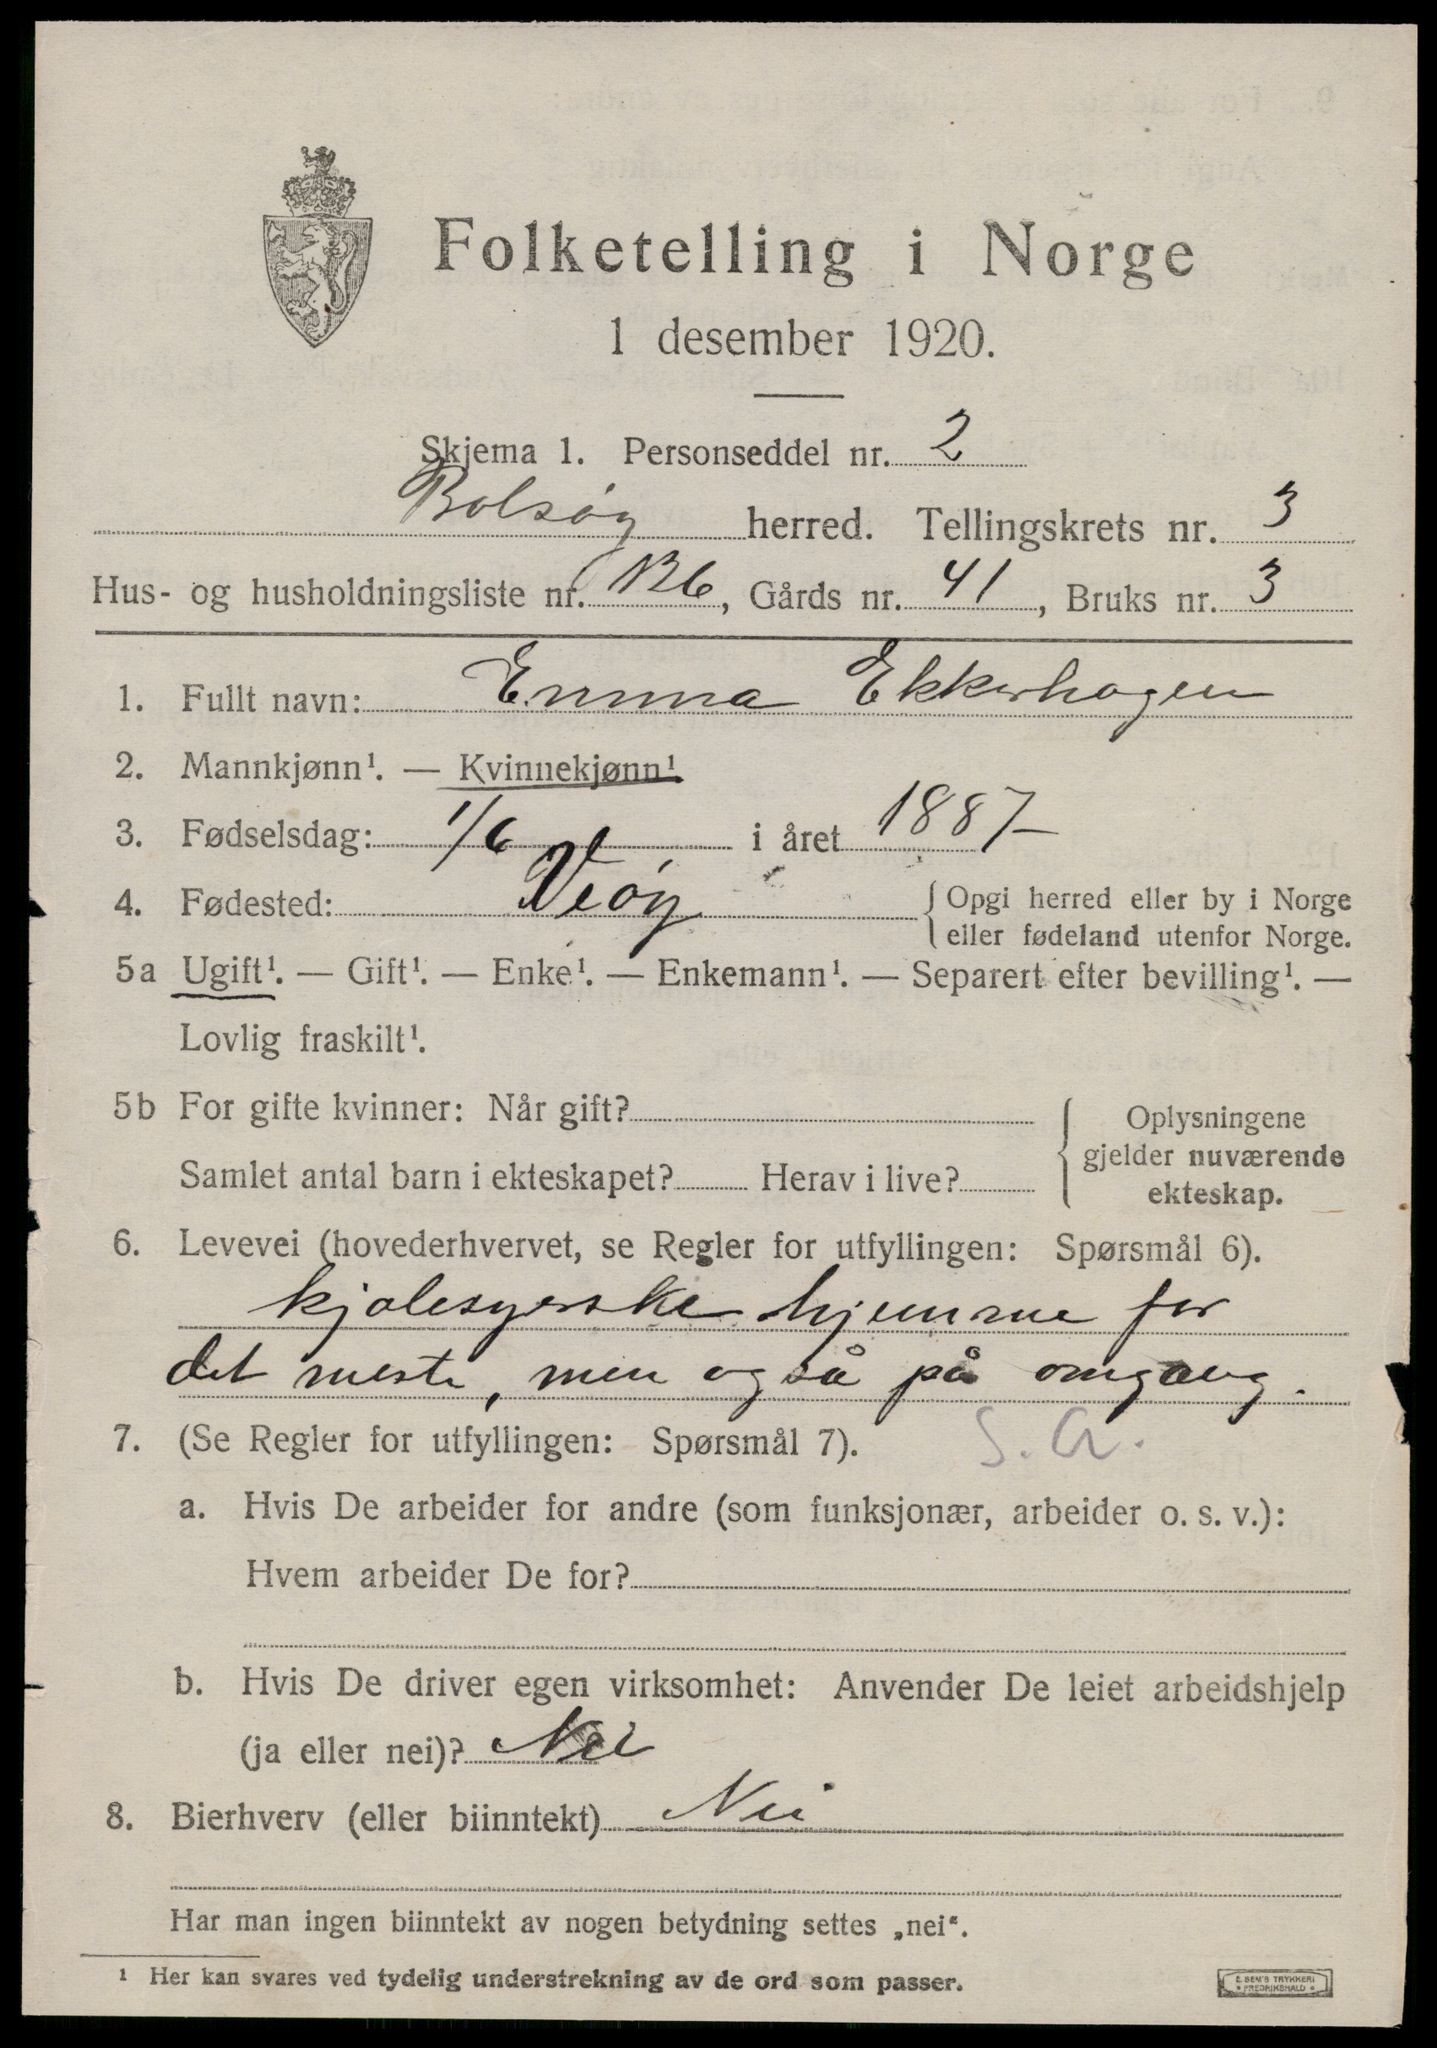 Folketelling i Norge
1 desember 1920.
Skjema 1. Personseddel nr. 2
Bolsøy herred. Tellingskrets nr. 3
Hus- og husholdningsliste nr. 136, Gårds nr. 41, Bruks nr. 3
1. Fullt navn: Emma Ekkerhagen
2. Mannkjønn¹. — Kvinnekjønn¹
3. Fødselsdag: 1/6 i året 1887
4. Fødested: Veøy { Opgi herred eller by i Norge
eller fødeland utenfor Norge.
5a Ugift¹. — Gift¹. — Enke¹. — Enkemann¹. — Separert efter bevilling¹. —
Lovlig fraskilt¹.
5b For gifte kvinner: Når gift?
Samlet antal barn i ekteskapet? Herav i live?
Oplysningene
gjelder nuværende
ekteskap.
6. Levevei (hovederhvervet, se Regler for utfyllingen: Spørsmål 6).
kjolesyerske hjemme for
det meste, men også på omgang.
7. (Se Regler for utfyllingen: Spørsmål 7). S. A.
a. Hvis De arbeider for andre (som funksjonær, arbeider o. s. v.):
Hvem arbeider De for?
b. Hvis De driver egen virksomhet: Anvender De leiet arbeidshjelp
(ja eller nei)? Nei
8. Bierhverv (eller biinntekt) Nei
Har man ingen biinntekt av nogen betydning settes „nei“.
¹ Her kan svares ved tydelig understrekning av de ord som passer.
E. SEM'S TRYKKERI
FREDRIKSHALD